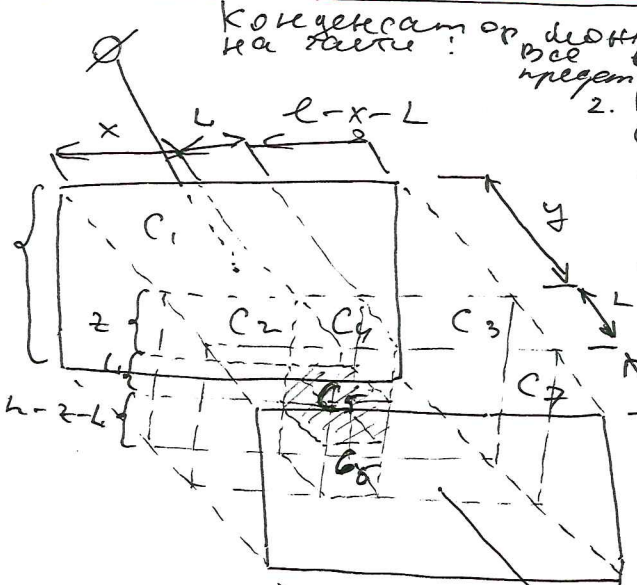 Конденсатор
на части:
Все
2.
x L l-x-L
y
C₁
z C₂ C₄ C₃
L
C₅ C₇
h-z-L
C₆